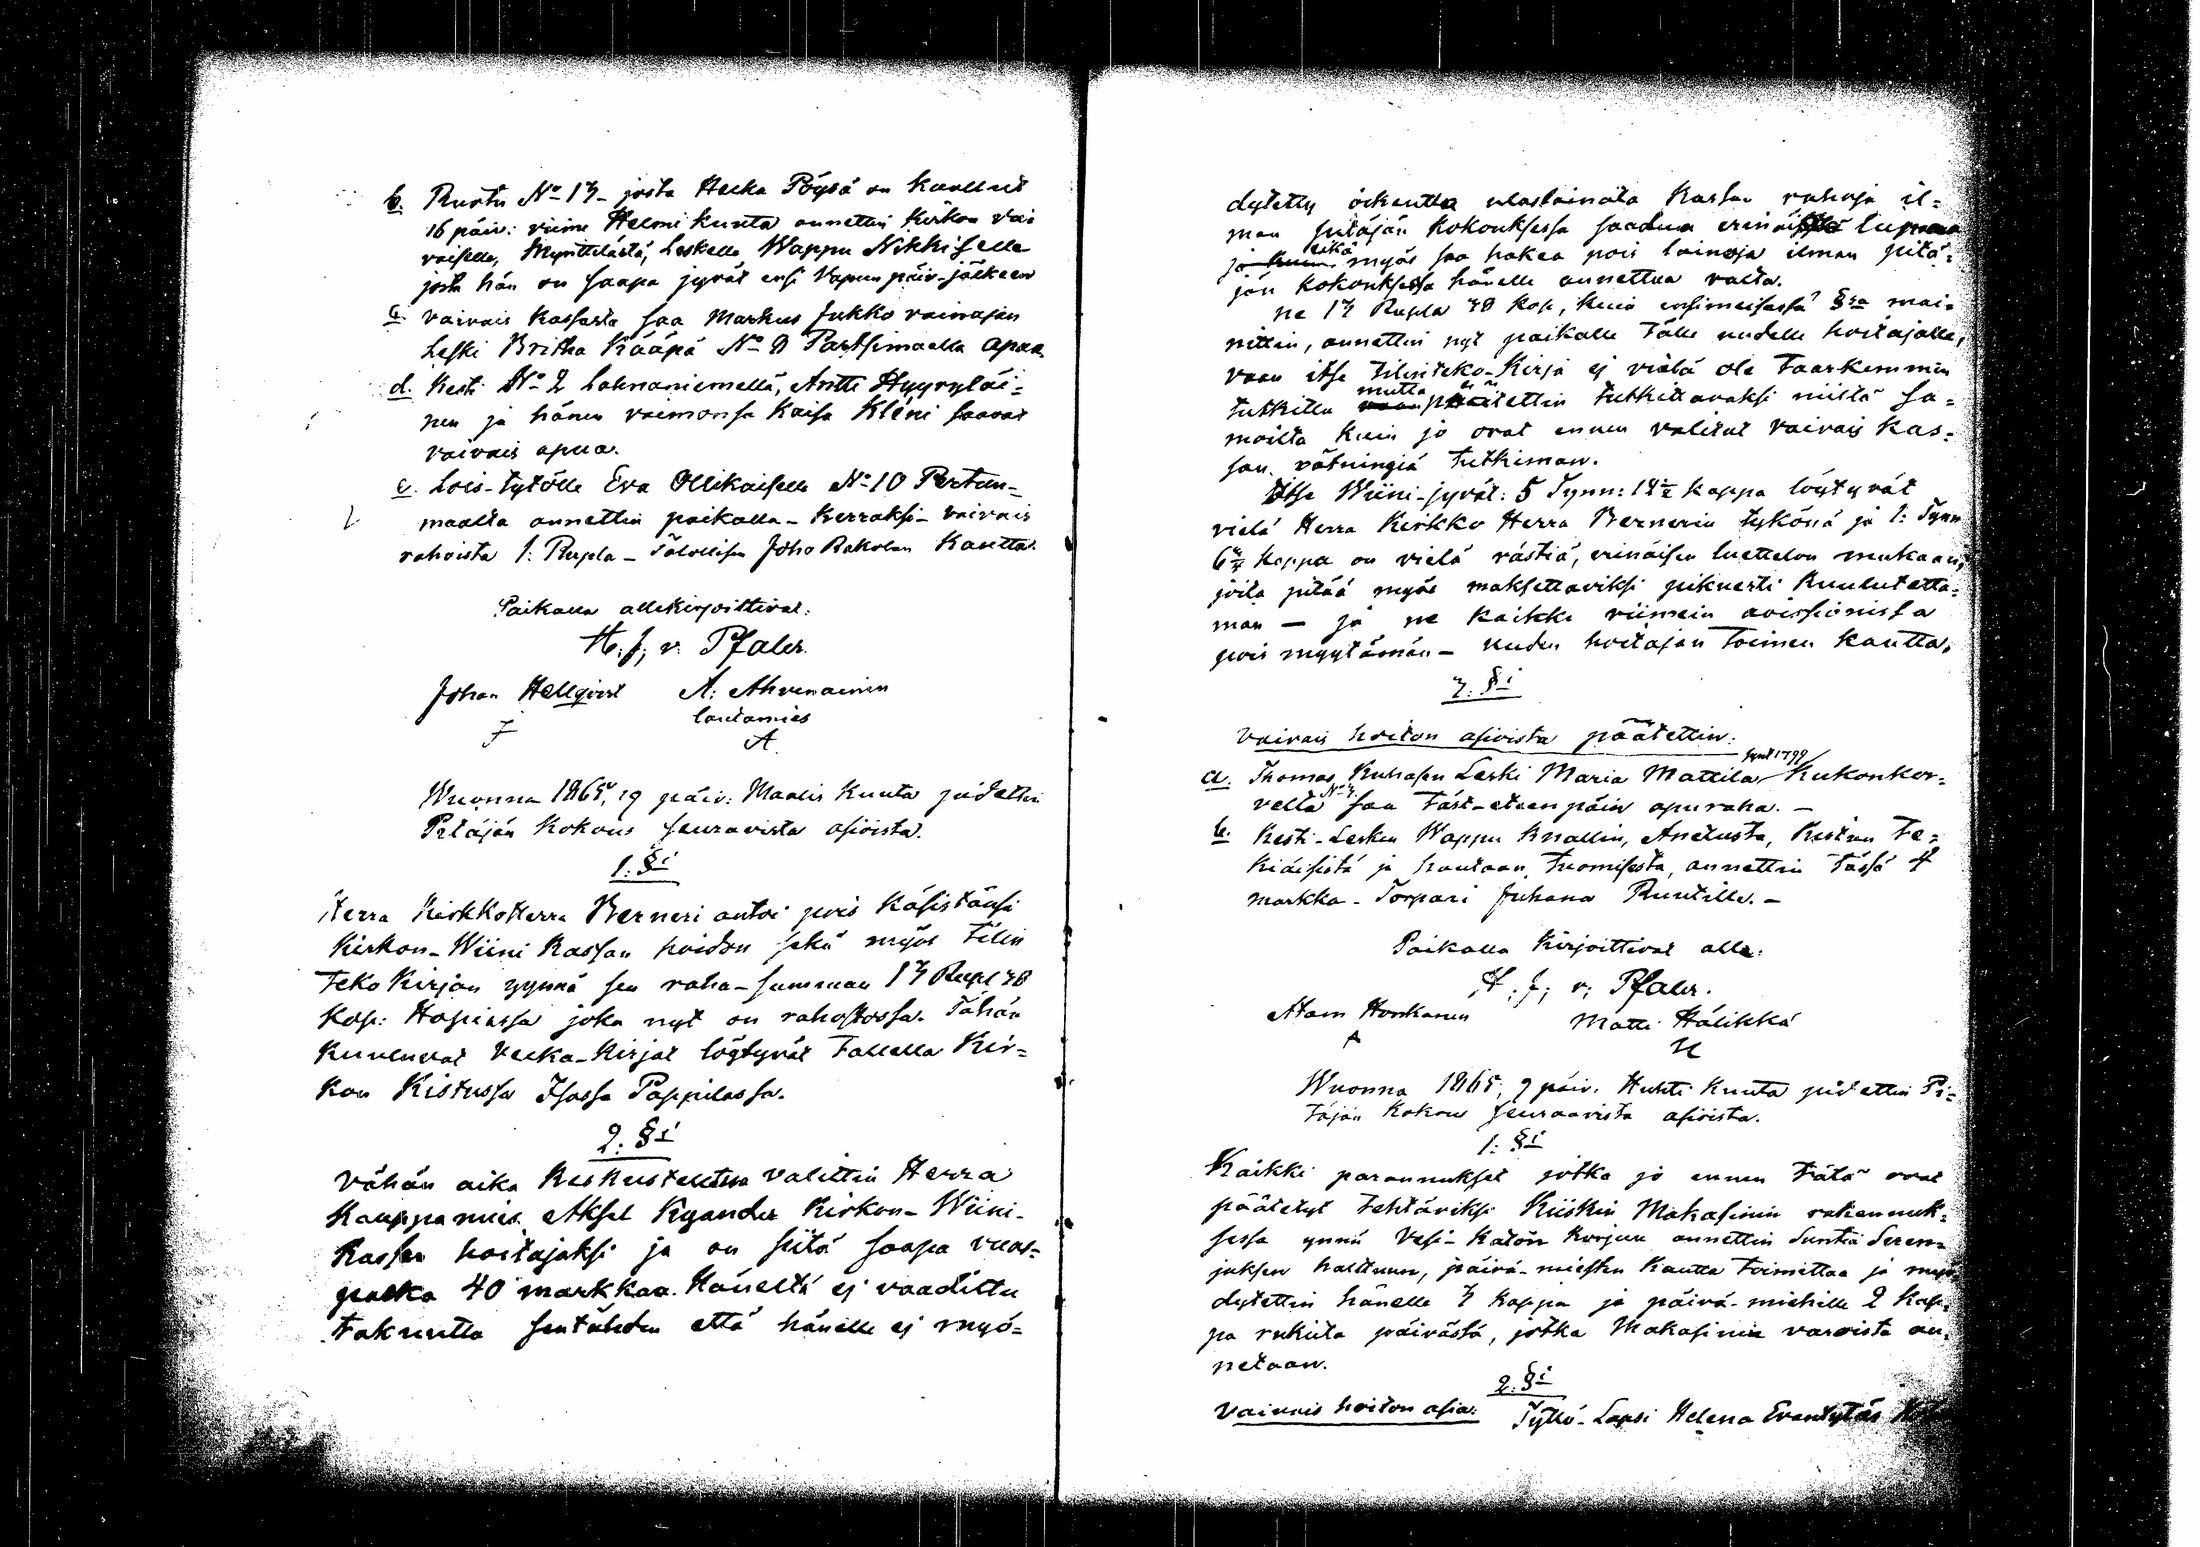 b. Ruotu No 13 josta Heikka Pöysä on kuollut
16 päiv: viime Helmi kuuta annettiin kirkon vai
vaiselle, Mynttilästä, Leskelle Wappu Nikkiselle
josta hän on saapa jyvät ensi Vapun päiv-jälkeen
c. vaivais kassasta saa Markus Jukko vainajan
Leski Britha Kääpä No 8 Partsimaalla apua
d. Kesti No 2 Lahnaniemellä, Antti Hyyryläi=
nen ja hänen vaimonsa Kaisa Kleni saavat
vaivais apua.
e. Lois-tytölle Eva Ollikaiselle No 10 Pertun=
maalta annettin paikalla-kerraksi-vaivais
rahoista 1: Rupla - Talollisen Joho Rakolan kautta.
Paikalla allekirjoittivat:
H. J; v. Pfaler.
Johan Hellqvist A: Ahvenainen
lautamies
A
Wuonna 1865, 19 päiv: Maalis kuuta pidettin
Pitäjän kokous seuravista asioista.
1. §i
Herra Kirkkoherra Berneri antoi pois käsistänsä
Kirkon-Wiini kassan hoidon sekä myös tilin
teko kirjan ynnä sen raha-summan 13 Rupl 38
kop: Hopiassa joka nyt on rahastossa. Tähän
kuuluvat Veika-kirjat löytyvät tallella Kir=
kon Kistussa Isossa Pappilassa.
2. §i
Vähän aika keskusteltua valittin Herra
kauppamies Aksel Kyander Kirkon-Wiini-
kassan hoitajaksi ja on siitä saapa vuos=
palka 40 markkaa. Häneltä ej vaadittu
takuutta sentähden että hänelle ej myö=
dytetty oikeutta ulaslainata kassan rahoja il=
man pitäjän kokouksessa saadua erinäistä lupaa
ja eikä myös saa hakea pois lainoja ilman pitä=
jän kokouksessa hänelle annettua valta.
ne 13 Rupla 38 kop, kuin ensimeisessä §sa mai=
nittin, annettin nyt paikalla tälle uudelle hoitajalle,
vaan itse tilinteko-kirja ej vielä ole taarkemmin
tutkittu mutta päätettin tutkittavaksi niiltä sa=
moilta kuin jo ovat ennen valitut vaivais kas=
san rätningiä tutkiman.
Itse Wiini-jyvät: 5 Tynn: 14 1/2 kappa löytyvät
vielä Herra Kirkko Herra Bernerin tykönä ja 1: Tynn
kappa on vielä rästiä, erinäisen luettelon mukaan,
joita pitää myös maksettaviksi pikuesti kuulutetta=
man - ja ne kaikki viimein
pois myytämän - uuden hoitajan toimen kautta.
3. §i
Vaivais hoiton asioista päätettin:
synt 1799
a. Thomas Kuhasen Leski Maria Mattila Kukonkor=
velta saa täst-eteenpäin apuraha. -
b. Kesti-Lesken Wappu Knallin, Anetusta, Kirstun te=
kiäisistä ja hautaan tuomisesta, annettin tässä 4
markka - Torpari Juhana Ruutille. -
Paikalla kirjoittivat alla:
H. J; v; Pfaler.
Atam Honkanen Matti Hälikkä
Wuonna 1865, 9 päiv. Huhti kuuta pidettin Pi=
täjän kokous seuraavista asioista.
1: §i
Kaikki parannukset jotka jo ennen tätä ovat
päätetyt tehtäviksi Kiiskin Makasinin rakennuk=
sessa ynnä vesi-katon korjuu annettin Suntia Seren=
juksen halttuun, päivä-miesten kautta toimittaa ja myö
dytettin hänelle 3 kappa ja päivä-miehille 2 kap
pa rukiita päivästä, jotka Makasinin varoista an=
netaan.
2. §i
Vaivais hoiton asia: Tyttö-Lapsi Helena Evantytär